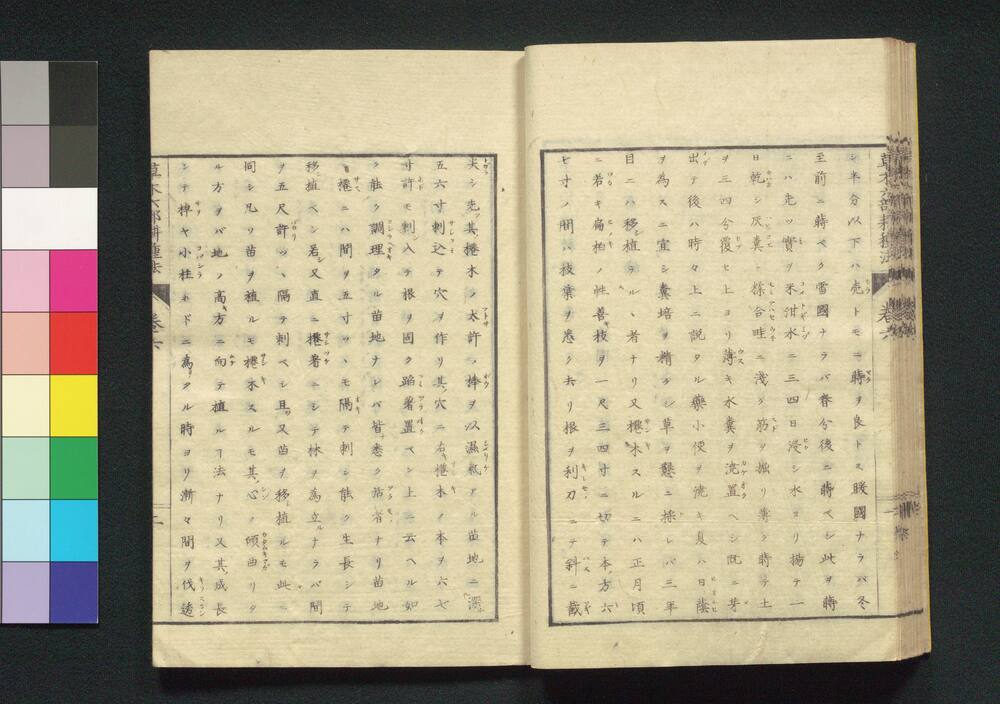 シ半分以下ハ売トモニ蒔ヲ良トス暖國ナラバ冬
至前ニ蒔ベク雪國ナラバ春分後ニ蒔ベシ此ヲ蒔
ニハ先ッ實ヲ米泔水ニ三四日浸シ水ヨリ揚テ一
日乾シ灰糞ト揉合畦ニ淺ク筋ヲ掘リ薄ク蒔テ土
ヲ三四分覆ヒ上ヨリ薄キ水糞ヲ澆置ヘシ既ニ芽
出テ後ハ時々上ニ説タル藥小便ヲ澆キ夏ハ日蔭
ヲ為スニ宜シ糞培ヲ精クシ草ヲ懇ニ採レバ三年
目ニハ移植ラルヽ者ナリ又樁木スルニハ正月頃
ニ若キ扁柏ノ性善枝ヲ一尺三四寸ニ切テ本方六
七寸ノ間ハ枝葉ヲ悉ク去リ根ヲ利刀ニテ斜ニ截
尖シ先其樁木ノ太許ノ棒ヲ以濕氣アル苗地ニ深
五六寸刺込テ穴ヲ作リ其穴ニ右樁木ノ本ヲ六七
寸許モ刺入テ根ヲ固ク蹈著置ベシ上ニ云ヘル如
ク能ク調理タル苗地ナレバ皆悉ク活着ナリ苗地
ニ樁ニハ間ヲ五寸ツヽモ隔テ刺シ能ク生長シテ
移植ベシ若シ又直ニ樁著ニシテ林ヲ為立ルナラバ間
ヲ五尺許ツヽ隔テ刺ベシ且又苗ヲ移植ルモ此ニ
同シ凡リ苗ヲ植ルモ樁木スルモ其心ノ傾曲リタ
ル方ヲバ地ノ高方ニ向テ植ルヿ法ナリ又其成長
シテ棹ヤ小柱ホドニ為タル時ヨリ漸々間ヲ伐透
草木六部耕種法
巻六